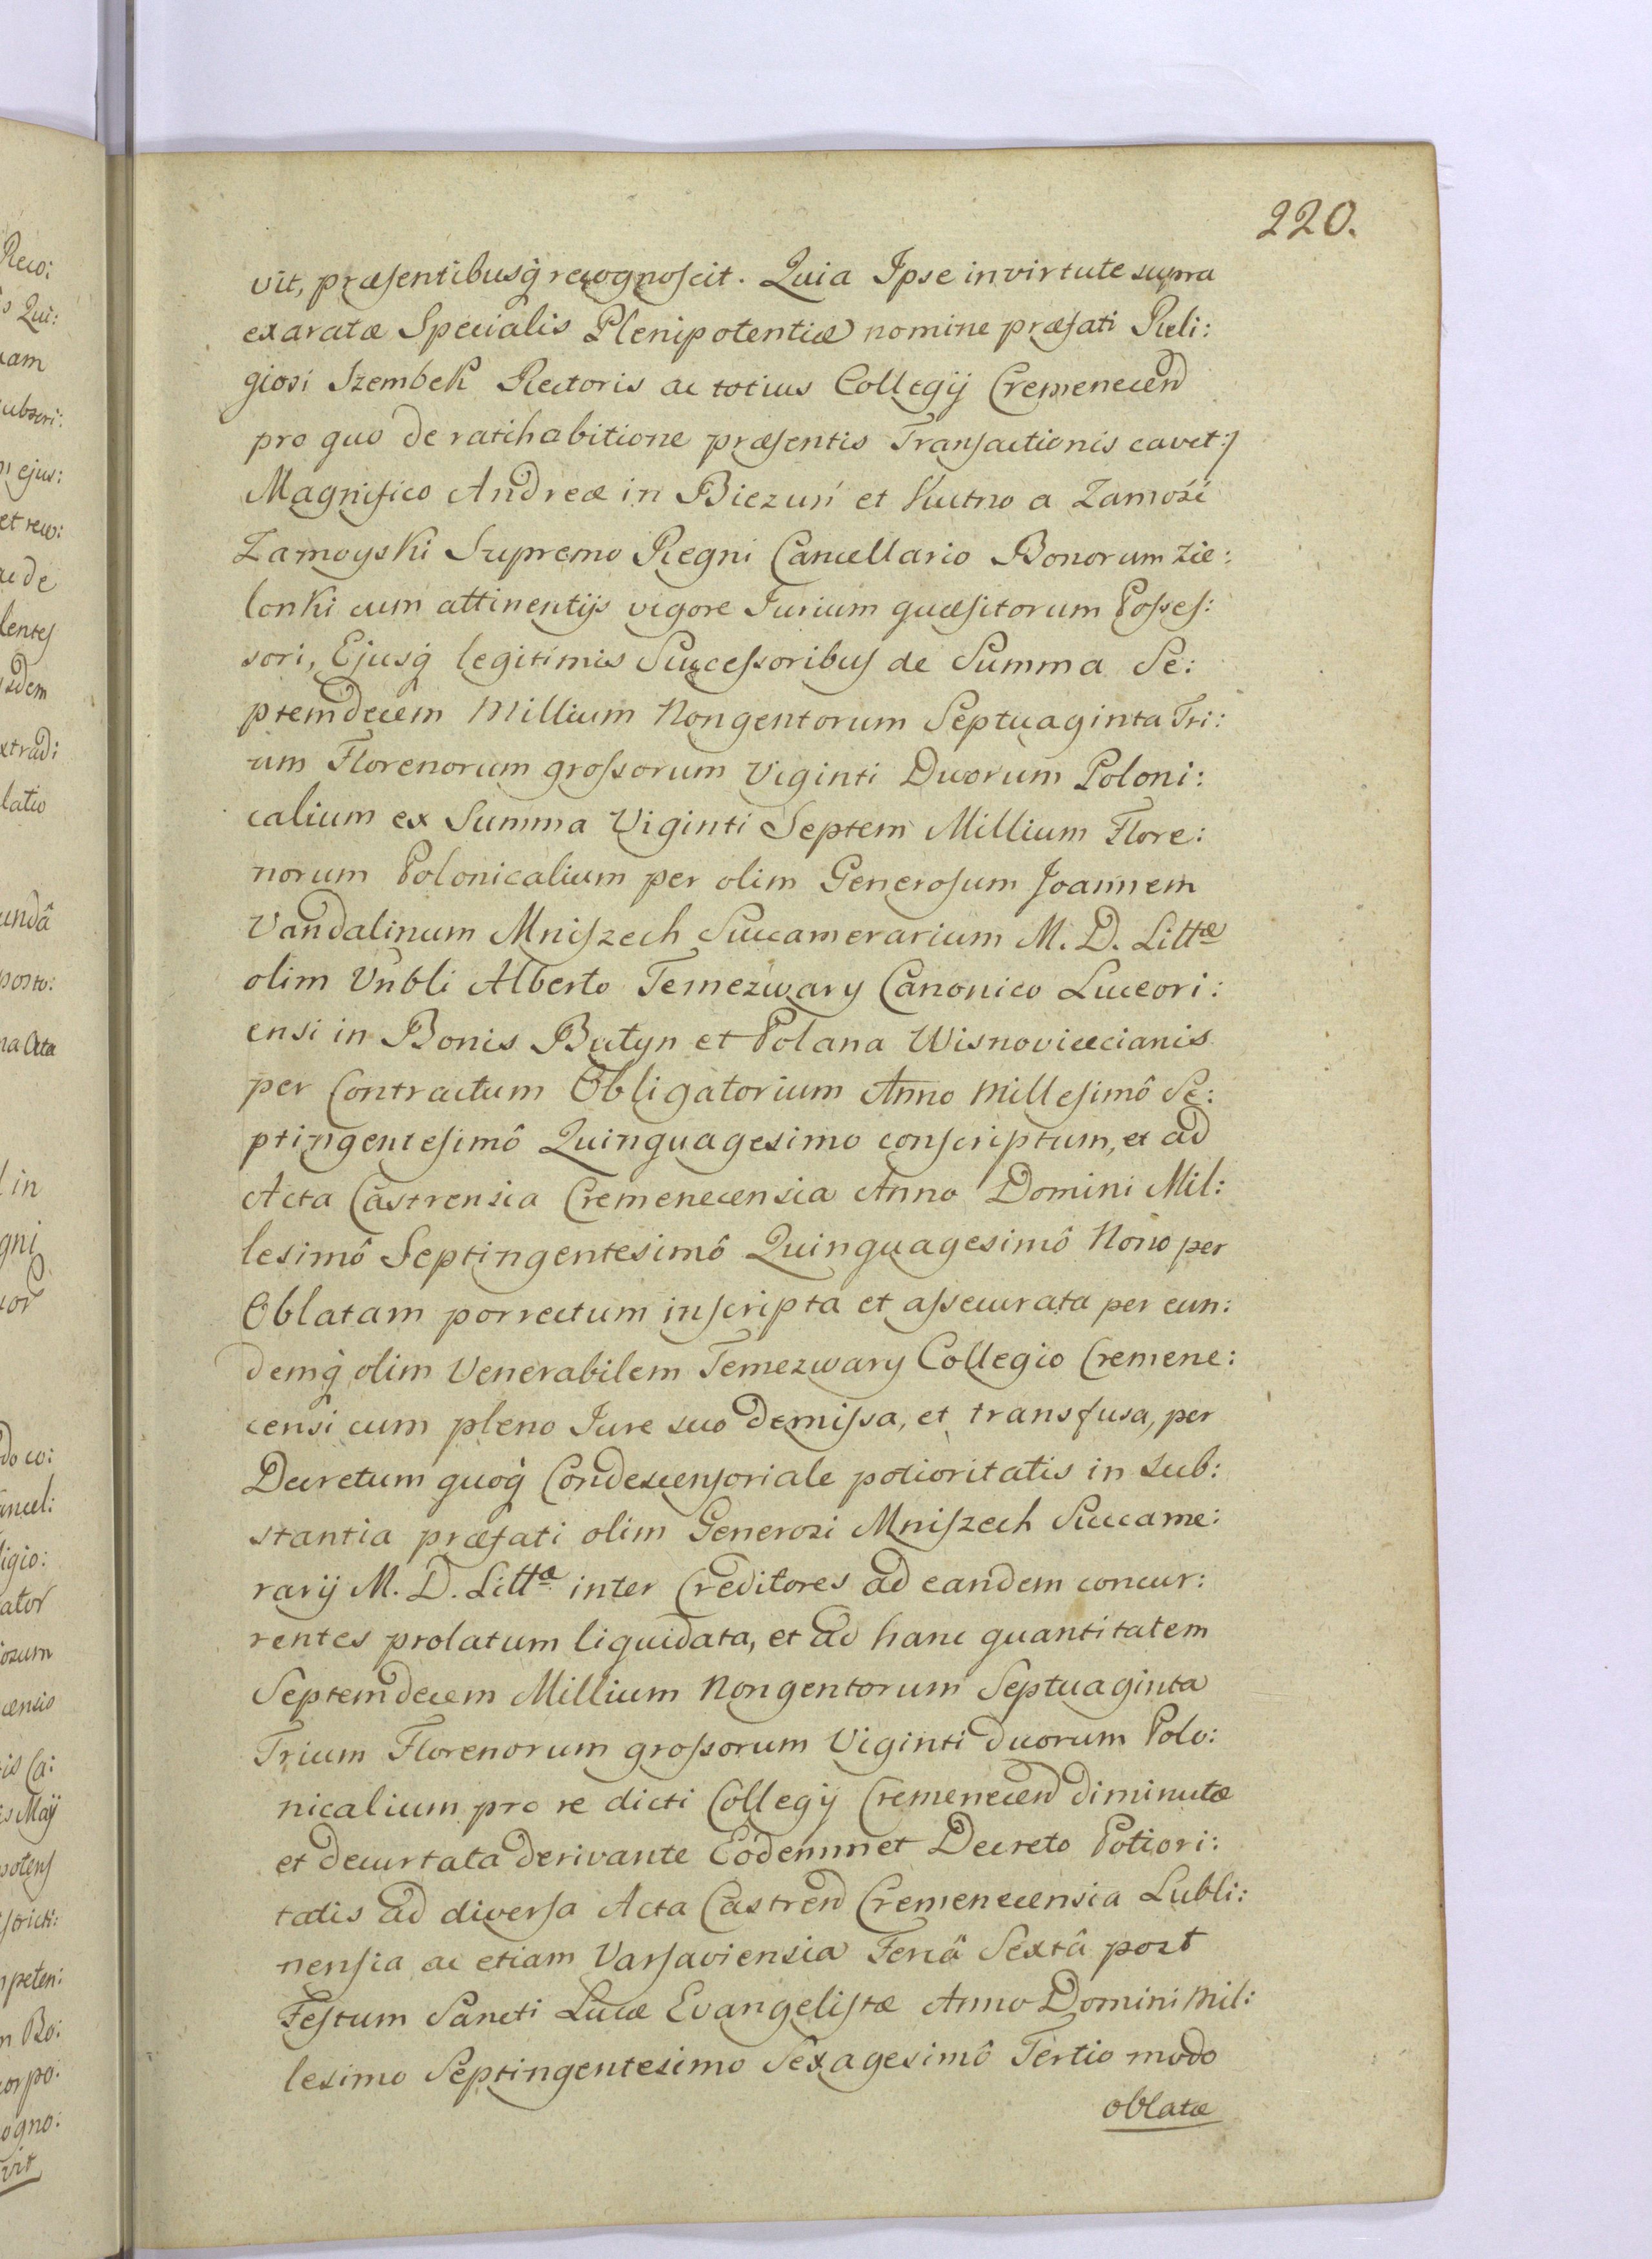 220.
vit, præsentibusq̀ recognoscit. Quia Ipse in virtute supra
exaratæ Specialis Plenipotentiæ nomine præfati Reli:
giosi Szembek Rectoris ac totius Collegij Cremenecen
pro quo de ratihabitione præsentis Transactionis cavet:/
Magnifico Andreæ in Biezuń et Kutno a Zamość
Zamoyski Supremo Regni Cancellario Bonorum Zie:
lonki cum attinentijs vigore Iurium quæsitorum Posses:
sori, Ejusq̀ legitimis Successoribus de Summa Se:
ptemdecem Millium Nongentorum Septuaginta Tri:
um Florenorum grossorum Viginti Duorum Poloni:
calium ex Summa Viginti Septem Millium Flore:
norum Polonicalium per olim Generosum Joannem
Vandalinum Mniszech Succamerarium M. D. Littæ
olim Vnbli Alberto Temezwary Canonico Luceori:
ensi in Bonis Butyn et Polana Wisnoviecianis
per Contractum Obligatorium Anno Millesimô Se:
ptingentesimô Quinquagesimo conscriptum, et ad
Acta Castrensia Cremenecensia Anno Domini Mil:
lesimô Septingentesimô Quinquagesimô Nono per
Oblatam porrectum inscripta et assecurata per eun:
demq̀ olim Venerabilem Temezwary Collegio Cremene:
censi cum pleno Iure suo demissa, et transfusa, per
Decretum quoq̀ Condescensoriale potioritatis in sub:
stantia præfati olim Generosi Mniszech Succame:
rarij M. D. Litta inter Creditores ad eandem concur:
rentes prolatum liquidata, et ad hanc quantitatem
Septemdecem Millium Nongentorum Septuaginta
Trium Florenorum grossorum Viginti duorum Polo:
nicalium pro re dicti Collegij Cremenecen diminutæ
et decurtata derivante Eodemmet Decreto Potiori:
tatis ad diversa Acta Castren Cremenecensia Lubli:
nensia ac etiam Varsaviensia Feriâ Sextâ post
Festum Sancti Lucæ Evangelistæ Anno Domini Mil:
lesimo Septingentesimo Sexagesimô Tertio modo
oblatæ